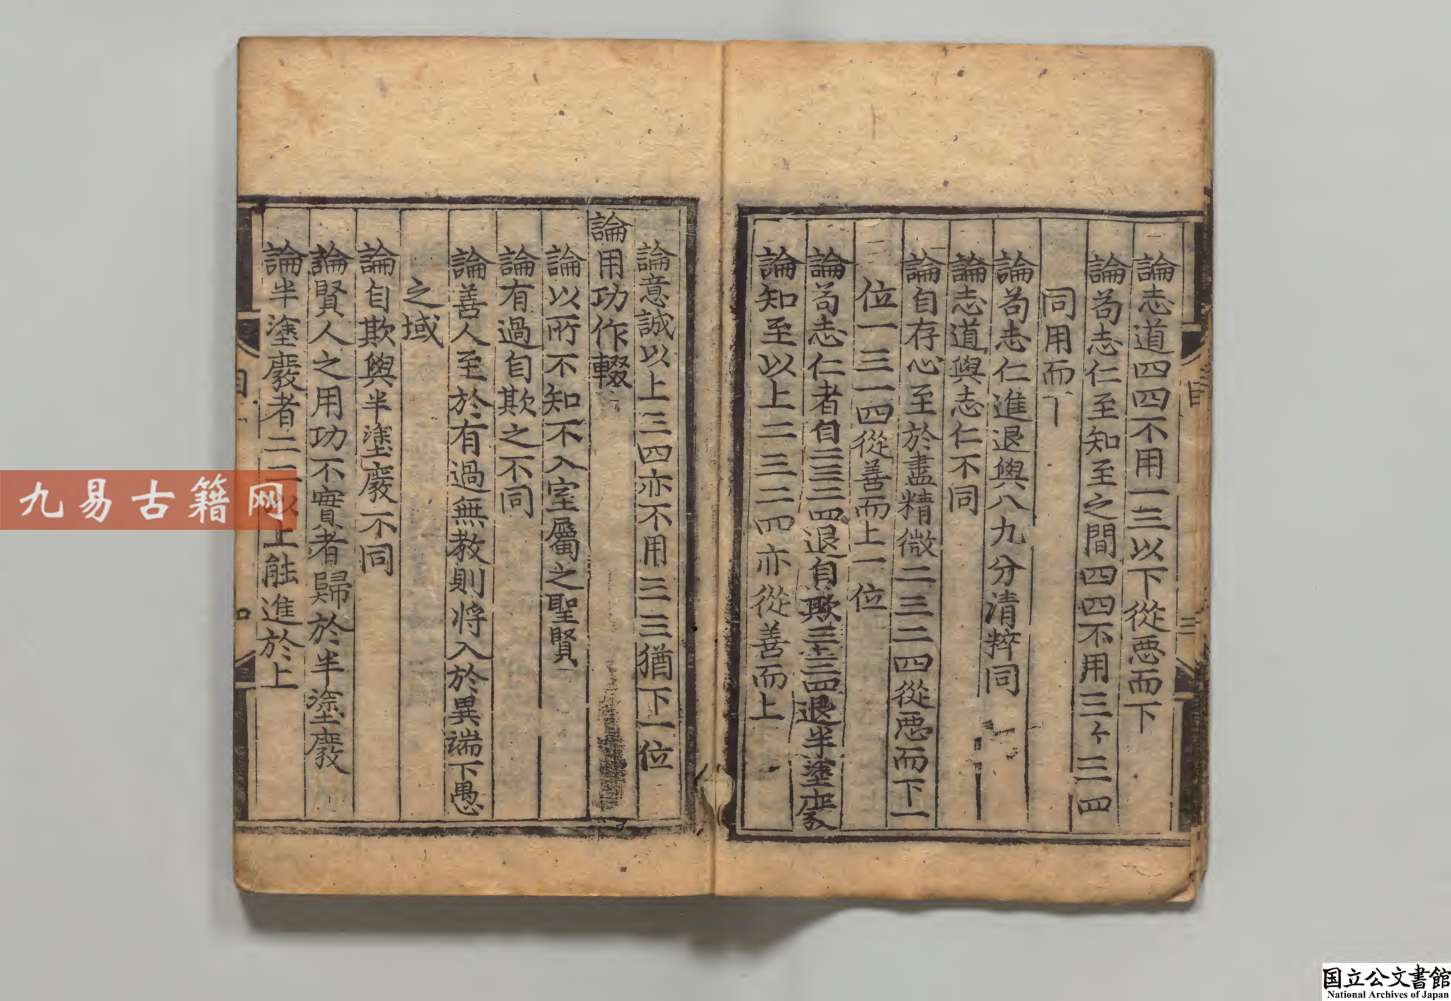 論志道四四不用一三以下從惡而下
論苟志仁至知至之間四四不用三三四
同用而下
論苟志仁進退與八九分清粹同
論志道與志仁不同
論自存心至於盡精微二三二四從惡而下一
位一三一四從善而上一位
論苟志仁者自三三四退自欺三三四退半塗廢
論知至以上二三二四亦從善而上
論意誠以上三四亦不用三三猶下一位
論用功作輟
論以所不知不入室屬之聖賢
論有過自欺之不同
論善人至於有過無教則將入於異端下愚
之域
論自欺與半塗廢不同
論賢人之用功不實者歸於半塗廢
論半塗廢者二以上能進於上
目
三
九易古籍网
国立公文書館
National Archives of Japan